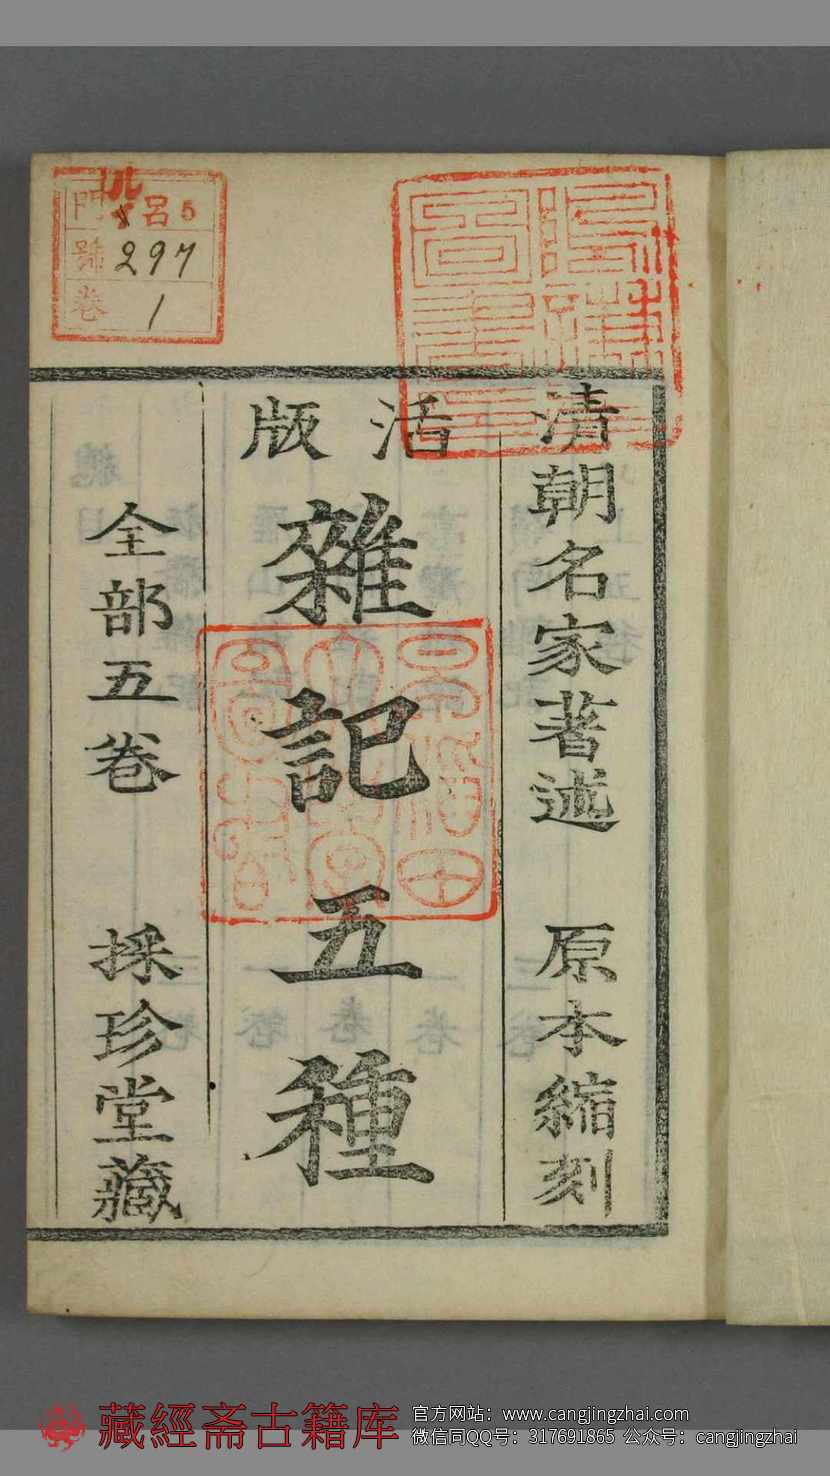 清朝名家著述 原本縮刻
活版
雜記五種
全部五卷 採珍堂藏
門 呂 5
號 297
卷 1
藏經斋古籍库
官方网站：www.cangjingzhai.com
微信同QQ号：317691865 公众号：cangjingzhai